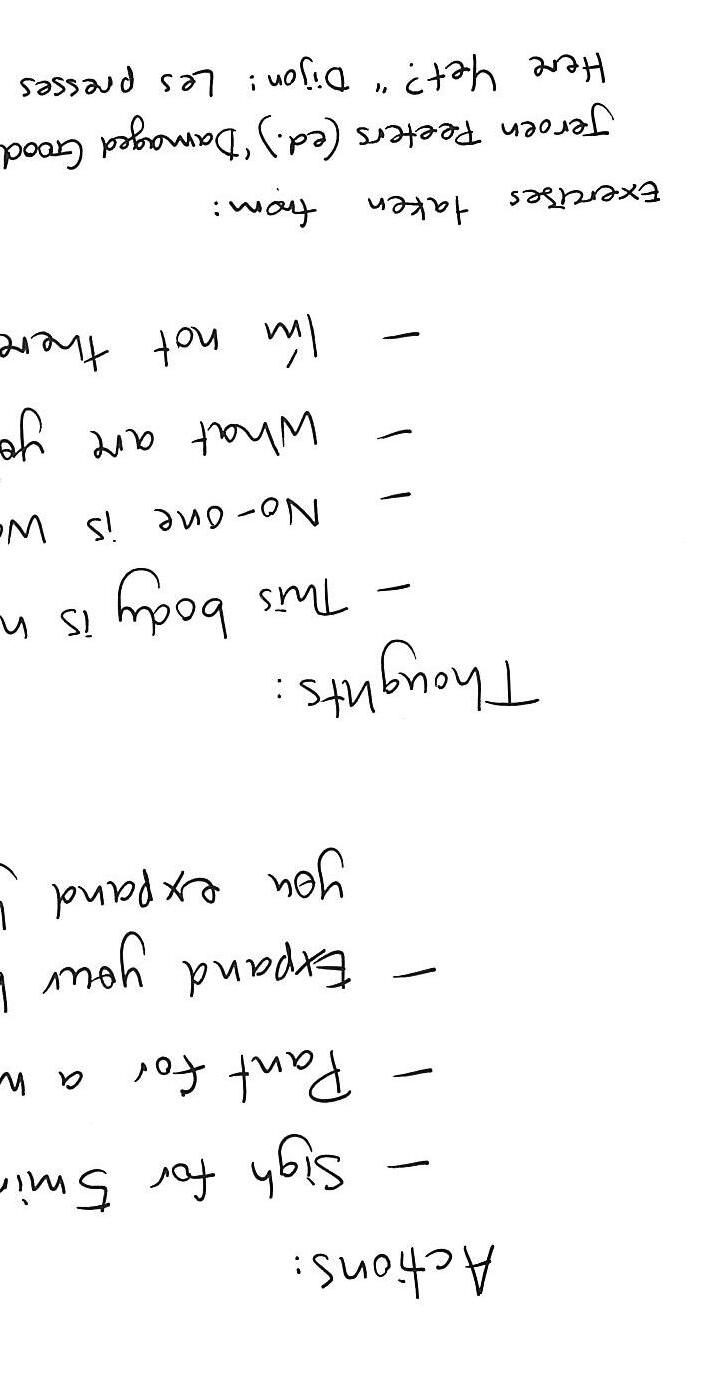 Actions:
- Sigh for 5 min
- Pant for a
- Expand your
you expand
Thoughts:
- This body is
- No-one is
- What are yo
- I'm not there
Exercises taken from:
Jeroen Peeters (ed.), "Damaged Good
Here Yet?" Dijon: Les presses